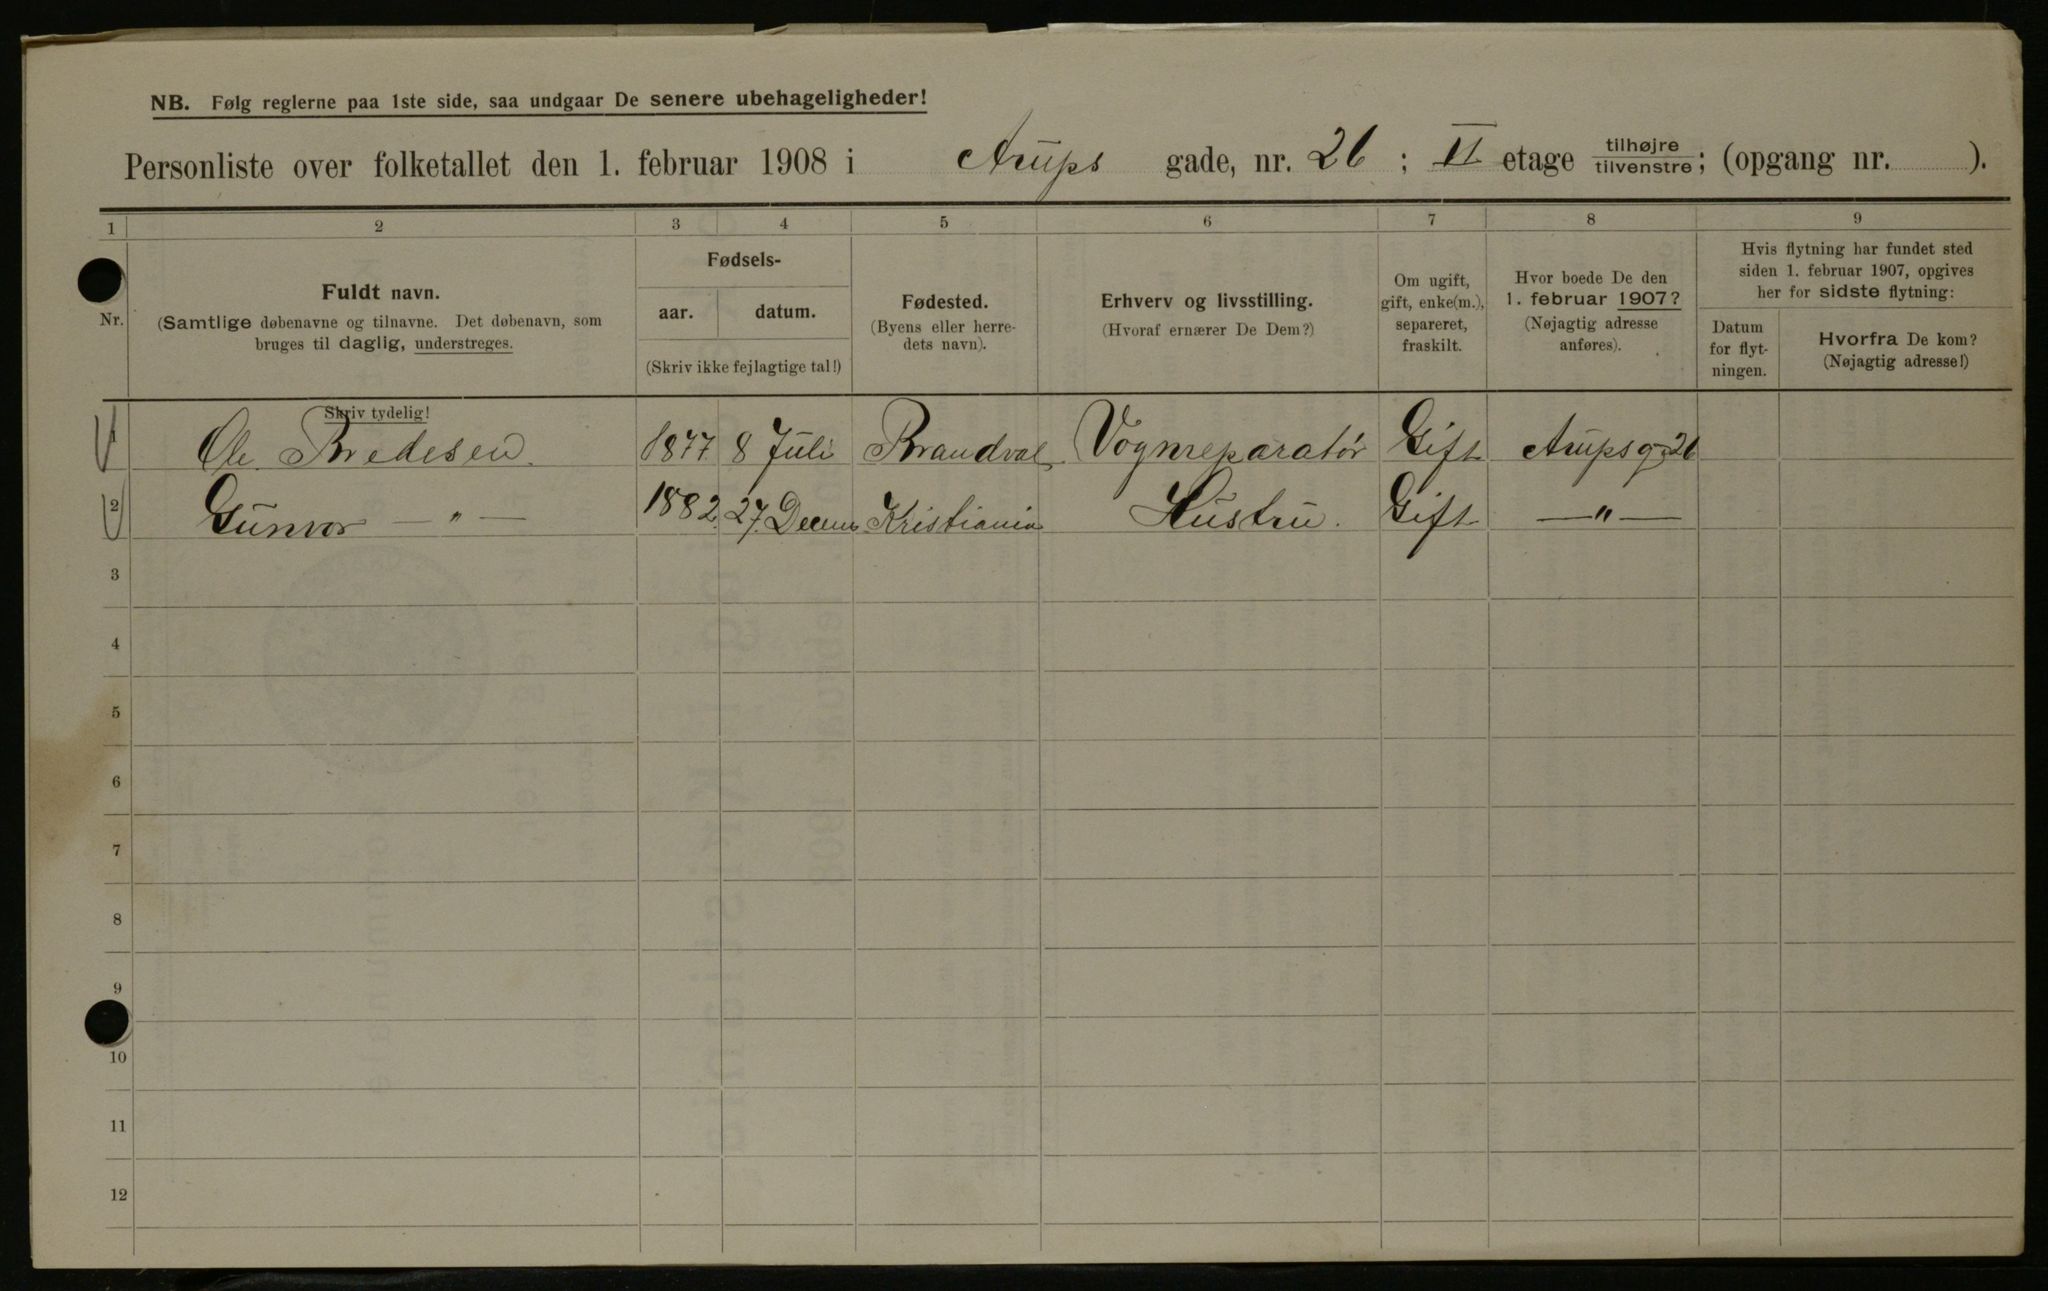 NB. Følg reglerne paa 1ste side, saa undgaar De senere ubehageligheder!
Personliste over folketallet den 1. februar 1908 i Arups gade, nr. 26 ; II etage tilhøjre/tilvenstre; (opgang nr. ).
1 2 3 4 5 6 7 8 9
Nr.
Fuldt navn.
(Samtlige døbenavne og tilnavne. Det døbenavn, som
bruges til daglig, understreges.
Skriv tydelig!
Fødsels-
aar. datum.
(Skriv ikke fejlagtige tal!)
Fødested.
(Byens eller herre-
dets navn).
Erhverv og livsstilling.
(Hvoraf ernærer De Dem?)
Om ugift,
gift, enke(m.),
separeret,
fraskilt.
Hvor boede De den
1. februar 1907?
(Nøjagtig adresse
anføres).
Hvis flytning har fundet sted
siden 1. februar 1907, opgives
her for sidste flytning:
Datum
for flyt-
ningen.
Hvorfra De kom?
(Nøjagtig adresse!)
1 Ole Bredesen. 1877. 8 Juli Brandval Vognreparatør Gift Arupsg 26
2 Gunvor — " — 1882. 27. Decem Kristiania Hustru. Gift — " —
3
4
5
6
7
8
9
10
11
12